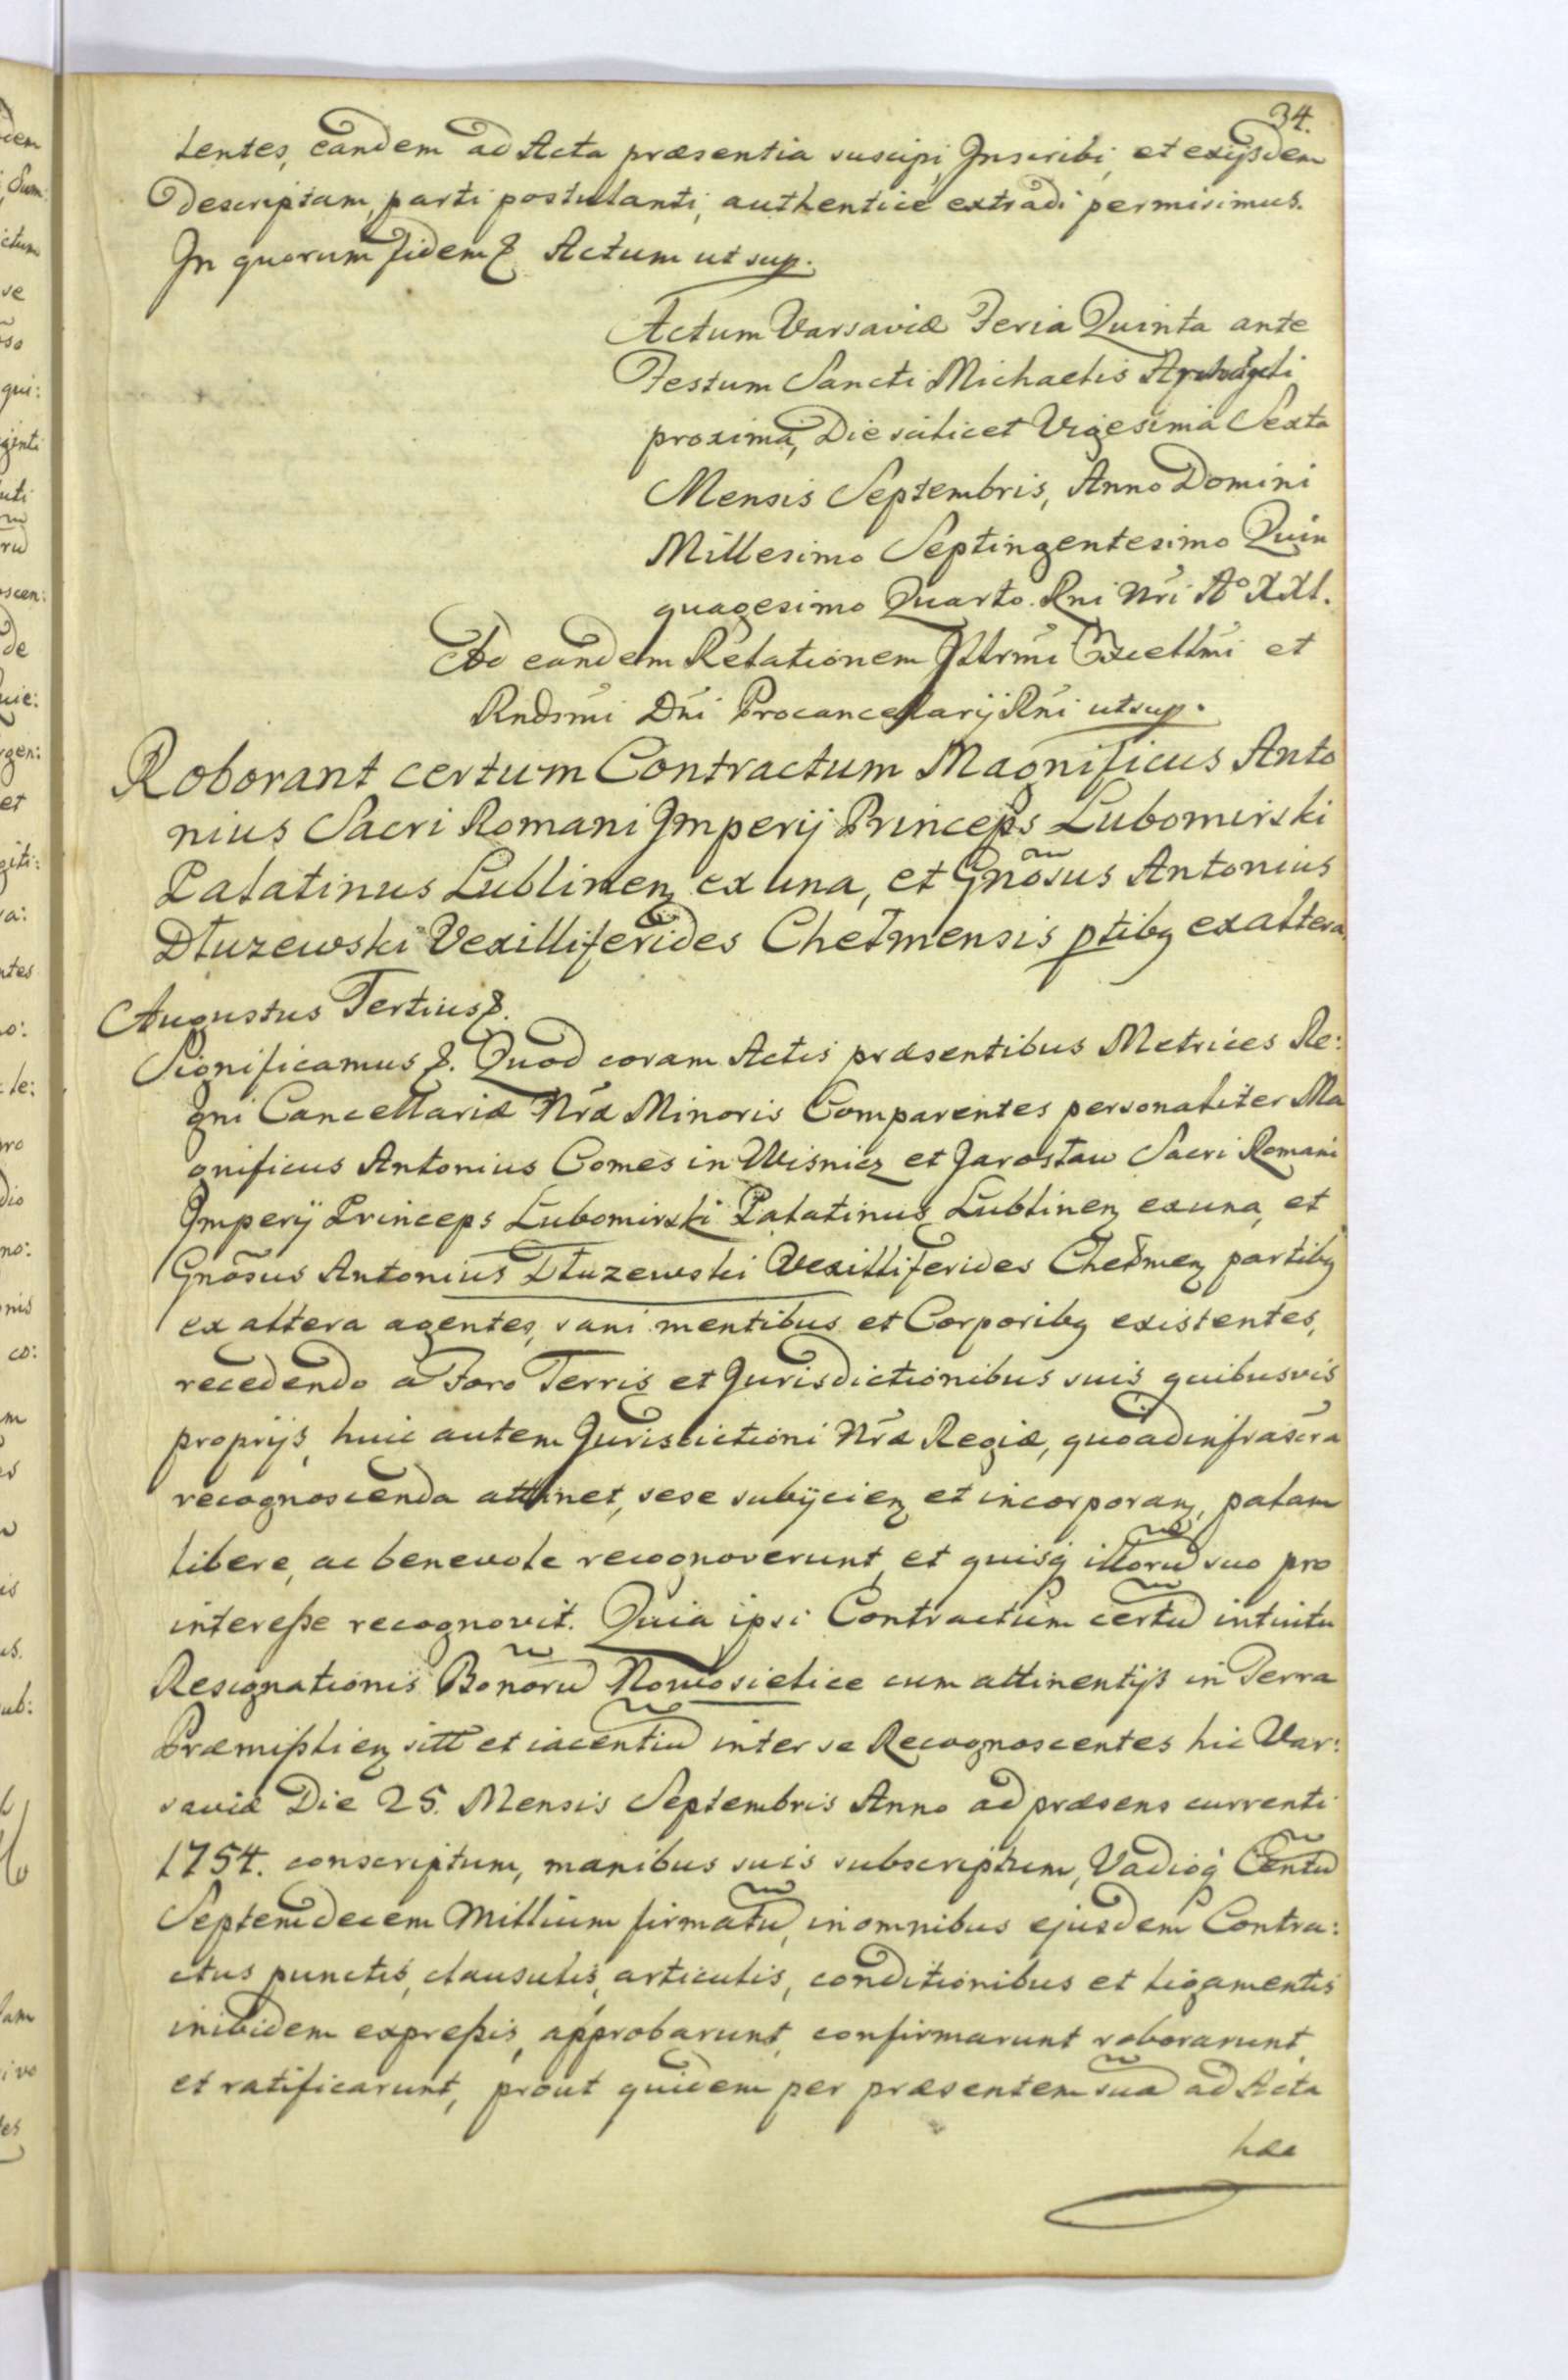 34.
tentes, eandem ad Acta præsentia suscipi, Inscribi, et exijsdem
descriptam, parti postulanti, authentice extradi permisimus.
In quorum fidem &. Actum ut sup.
Actum Varsaviæ Feria Quinta ante
Festum Sancti Michaelis Archãgeli
proxima, Die scilicet Vigesima Sexta
Mensis Septembris, Anno Domini
Millesimo Septingentesimo Quin
quagesimo Quarto. Rni Nri A° XXI.
Ad eandem Relationem Illrmi Excellmi et
Rndsmi Dni Procancellarij Rni ut sup.
Roborant certum Contractum Magnificus Anto
nius Sacri Romani Imperij Princeps Lubomirski
Palatinus Lublinenȝ ex una, et Gnõsus Antonius
Dłuzewski Vexilliferides Chełmensis ptibꝫ ex altera.
Augustus Tertius &.
Significamus &. Quod coram Actis præsentibus Metrices Re:
gni Cancellariæ Nræ Minoris Comparentes personaliter Ma
gnificus Antonius Comes in Wisnicz et Jarosław Sacri Romani
Imperij Princeps Lubomirski Palatinus Lublinenȝ ex una, et
Gnõsus Antonius Dłuzewski Vexilliferides Chełmenȝ partibꝫ
ex altera agentes, sani mentibus et Corporibꝫ existentes,
recedendo a Foro Terris et Jurisdictionibus suis quibusvis
proprijs, huic autem Jurisdictioni Nræ Regiæ, quoad infrascra
recognoscenda attinet, sese subijcienȝ et incorporanȝ, palam
libere, ac benevole recognoverunt, et quisq̃ illorũ suo pro
interesse recognovit. Quia ipsi Contractum certũ intuitu
Resignationis Bonorũ Nowosielice cum attinentijs in Terra
Præmislienȝ sitt et iacentiũ inter se Recognoscentes hic Var:
saviæ Die 25. Mensis Septembris Anno ad præsens currenti
1754. conscriptum, manibus suis subscriptum, Vadioq̃ Centũ
Septemdecem Millium firmatũ, in omnibus ejusdem Contra:
ctus punctis, clausulis, articulis, conditionibus et ligamentis
inibidem expressis, approbarunt, confirmarunt roborarunt,
et ratificarunt, prout quidem per præsentem suã ad Acta
hæc